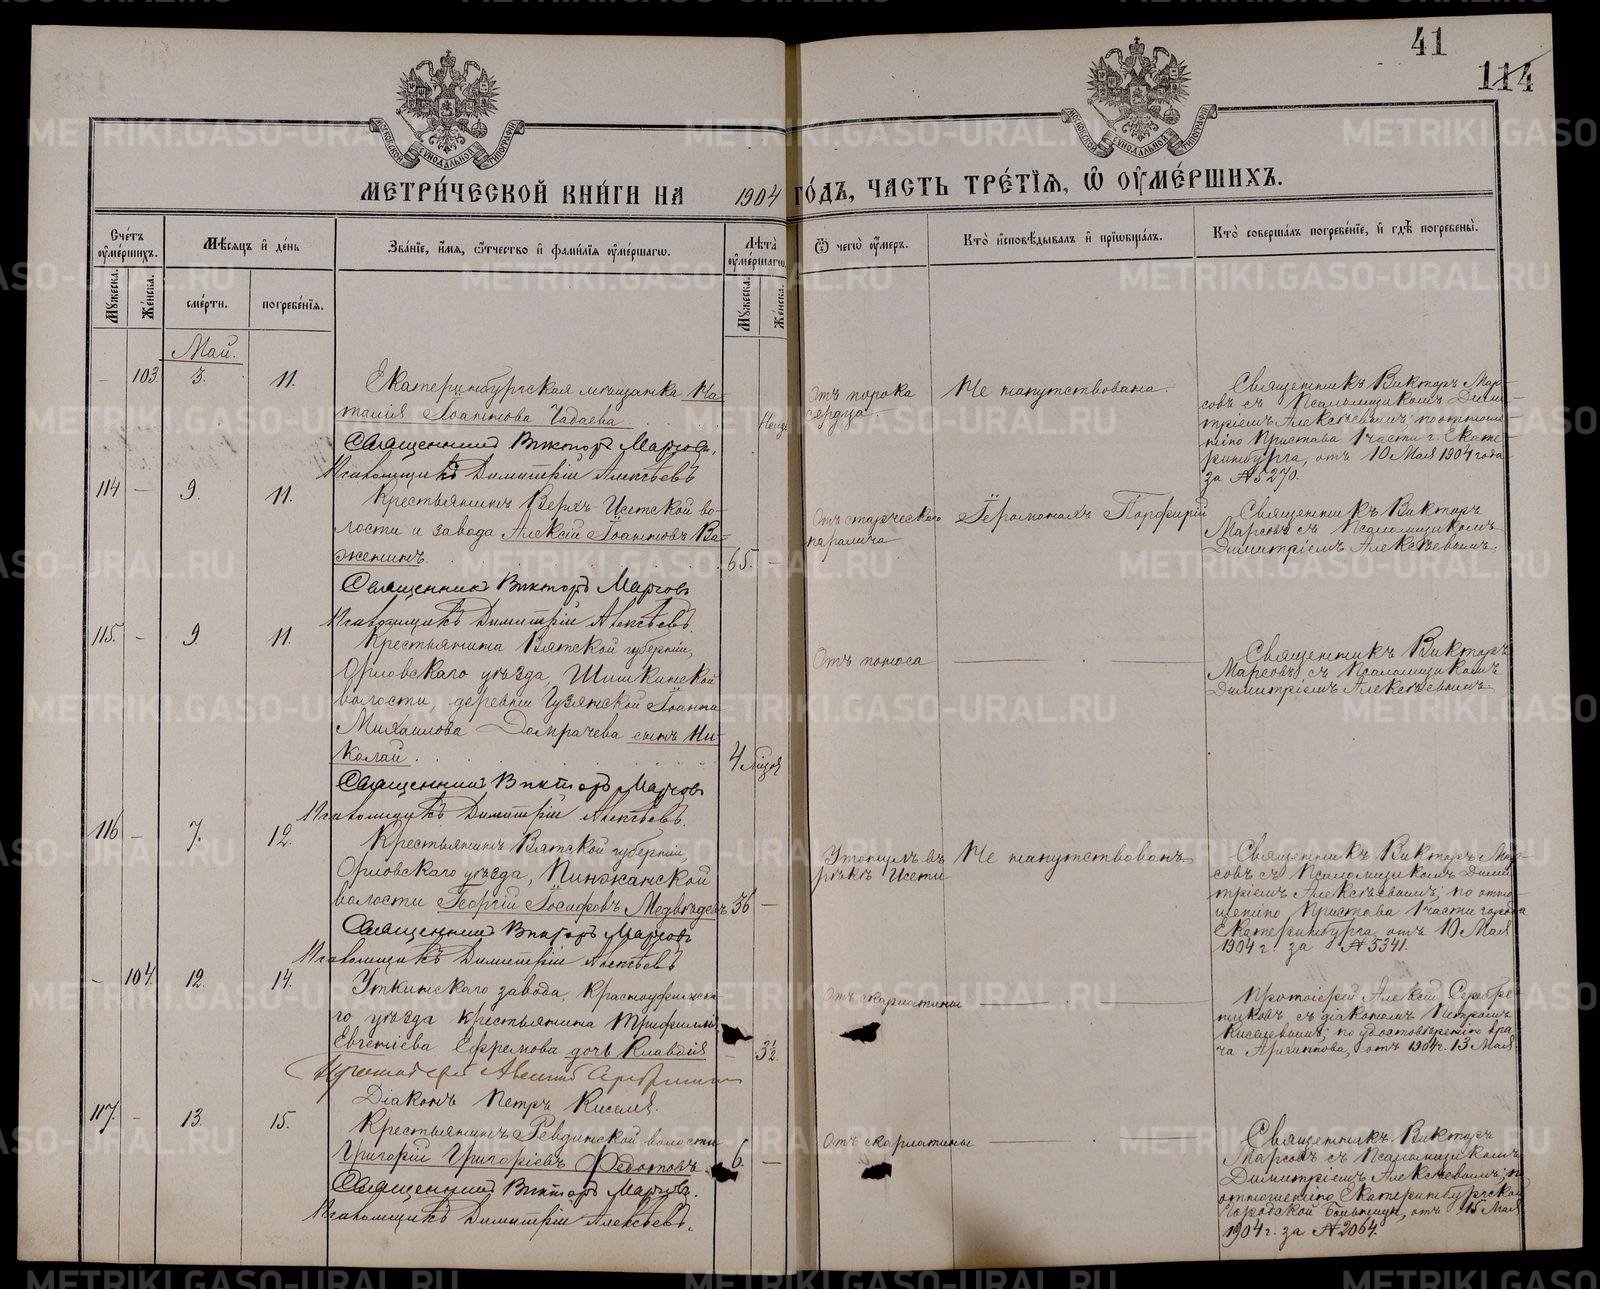 41
114
МОСКОВСКОЙ СѴНОДАЛЬНОЙ ТИПОГРАФІИ
МОСКОВСКОЙ СѴНОДАЛЬНОЙ ТИПОГРАФІИ
МЕТРИ́ЧЕСКОЙ КНИ́ГИ НА 1904 ГО́ДЪ, ЧАСТЬ ТРЕ́ТІѦ, Ѽ ОУМЕ́РШИХЪ.
Сче́тъ оуме́ршихъ.
Мѣсяцъ и де́нь
Зва́ніе, и́мя, ѻ́тчество и фами́лія оуме́ршагѡ.
Лѣта̀ оуме́ршагѡ.
Ѿ чегѡ̀ оу́меръ.
Кто̀ исповѣ́дывалъ и приѡбща́лъ.
Кто̀ соверша́лъ погребе́ніе, и гдѣ̀ погребены̀.
Мꙋ́жеска.
Же́нска.
сме́рти.
погребе́нія.
Мꙋ́жеска.
Же́нска.
Май.
– 103. 3. 11.
Екатеринбургская мѣщанка На-
талія Іоаннова Чадаева
Священникъ Викторъ Марсовъ.
Псаломщикъ Димитрій Алексѣевъ
Отъ порока
сердца.
Не напутствована.
Священникъ Викторъ Мар-
совъ съ Псаломщикомъ Дими-
тріемъ Алексѣевымъ; по отноше-
нію Пристава 1 части г. Екате-
ринбурга, отъ 10 Мая 1904 года
за № 5270.
114 – 9. 11.
Крестьянинъ Верхъ Исетской во-
лости и завода Алексій Іоанновъ Ва-
женинъ.
65. –
Священникъ Викторъ Марсовъ
Псаломщикъ Димитрій Алексѣевъ.
Отъ старческаго
паралича
Іеромонахъ Порфирій
Священникъ Викторъ
Марсовъ съ Псаломщикомъ
Димитріемъ Алексѣевымъ.
115. – 9 11.
Крестьянина Вятской губерніи,
Орловскаго уѣзда, Шишкинской
волости, деревни Іоанна
Михаилова Домрачева сынъ Ни-
колай.
4
Священникъ Викторъ Марсовъ
Псаломщикъ Димитрій Алексѣевъ.
Отъ поноса
Священникъ Викторъ
Марсовъ съ Псаломщикомъ
Димитріемъ Алексѣевымъ
116 – 7. 12.
Крестьянинъ Вятской губерніи,
Орловскаго уѣзда, Пинжанской
волости Георгій Іосифовъ Медвѣдевъ
36 –
Священникъ Викторъ Марсовъ
Псаломщикъ Димитрій Алексѣевъ
Утонулъ въ
рѣкѣ Исети
Не напутствованъ
Священникъ Викторъ Мар-
совъ съ Псаломщикомъ Дими-
тріемъ Алексѣевымъ; по отно-
шенію Пристава 1 части города
Екатеринбурга, отъ 10 Мая
1904 г. за № 5341.
– 104. 12. 14.
Уткинскаго завода, Красноуфимска-
го уѣзда крестьянина Трифиллія
Евгеніева Ефремова дочь Клавдія
– 3½
Протоіерей Алексій Серебренниковъ
Діаконъ Петръ Киселевъ.
Отъ скарлатины
Протоіерей Алексій Серебре-
никовъ съ діакономъ Петромъ
Киселевымъ; по удостовѣренію вра-
ча отъ 1904 г. 13 Мая.
117. – 13. 15.
Крестьянинъ Ревдинской волости
Григорій Григоріевъ Федотовъ.
6. –
Священникъ Викторъ Марсовъ.
Псаломщикъ Димитрій Алексѣевъ.
Отъ скарлатины
Священникъ Викторъ
Марсовъ съ Псаломщикомъ
Димитріемъ Алексѣевымъ; по
отношенію Екатеринбургской
Городской Больницы, отъ 15 Мая
1904 г. за № 2064.
METRIKI.GASO-URAL.RU